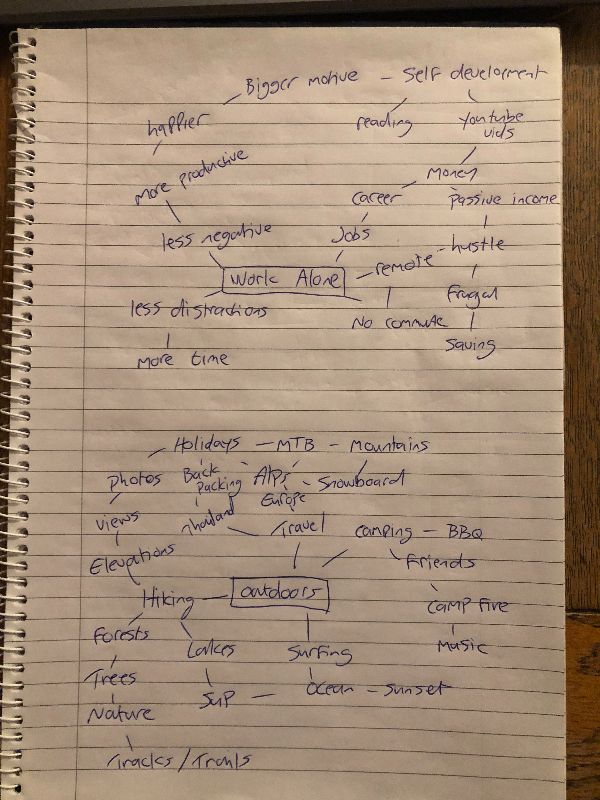 Bigger motive - Self development
happier
reading
Youtube vids
More productive
Money
Career
Passive income
less negative
Jobs
hustle
remote
Work Alone
Frugal
less distractions
No commute
Saving
More time
Holidays - MTB - Mountains
Photos
Back Packing
Alps
Snowboard
Europe
Views
Thailand
Travel
Camping - BBQ
Elevations
Friends
Hiking
Outdoors
Camp fire
Forests
Lakes
Surfing
Music
Trees
SUP - Ocean - Sunset
Nature
Tracks / Trails